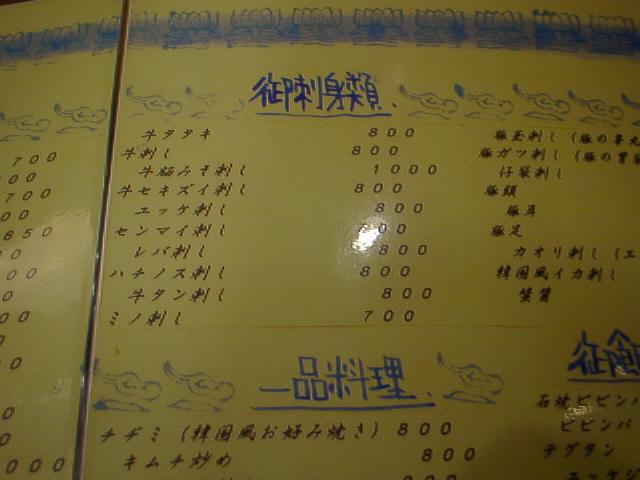 700
00
700
00
650
0
00
0
00
0
0
0
000
御刺身類
牛タタキ 800
牛刺し 800
牛脳みそ刺し 1000
牛セキズイ刺し 800
ユッケ刺し 800
センマイ刺し 00
レバ刺し 800
ハチノス刺し 800
牛タン刺し 800
ミノ刺し 700
一品料理
チヂミ(韓国風お好み焼き) 800
キムチ炒め 800
豚玉刺し(豚の睾丸
豚ガツ刺し(豚の胃袋
仔袋刺し
豚頭
豚耳
豚足
カオリ刺し(エ
韓国風イカ刺し
御飯
石焼ビビンバ
ビビンバ
テグタン
ユッケジ